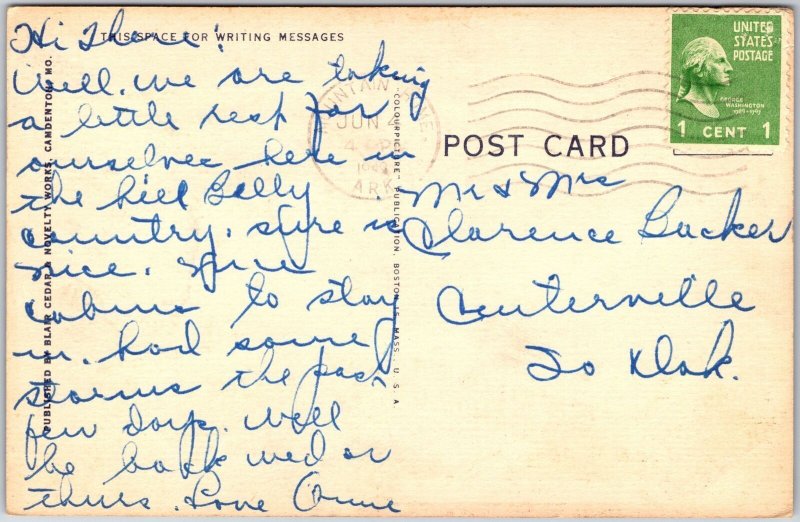 THIS SPACE FOR WRITING MESSAGES
Hi There!
Well. we are taking
a little rest for
ourselves here in
the hill Billy
country. sure is
nice. Nice
cabins to stay
in. had some
storms the past
few days. Will
be back wed or
thurs. Love Anne
PUBLISHED BY BLAIR CEDAR & NOVELTY WORKS, CAMDENTON, MO.
"COLOURPICTURE" PUBLICATION, BOSTON 15, MASS., U.S.A.
MOUNTAIN HOME
JUN 4
4 PM
ARK
UNITED
STATES
POSTAGE
GEORGE
WASHINGTON
1789-1797
1 CENT 1
POST CARD
Mr & Mrs
Clarence
Centerville
So Dak.